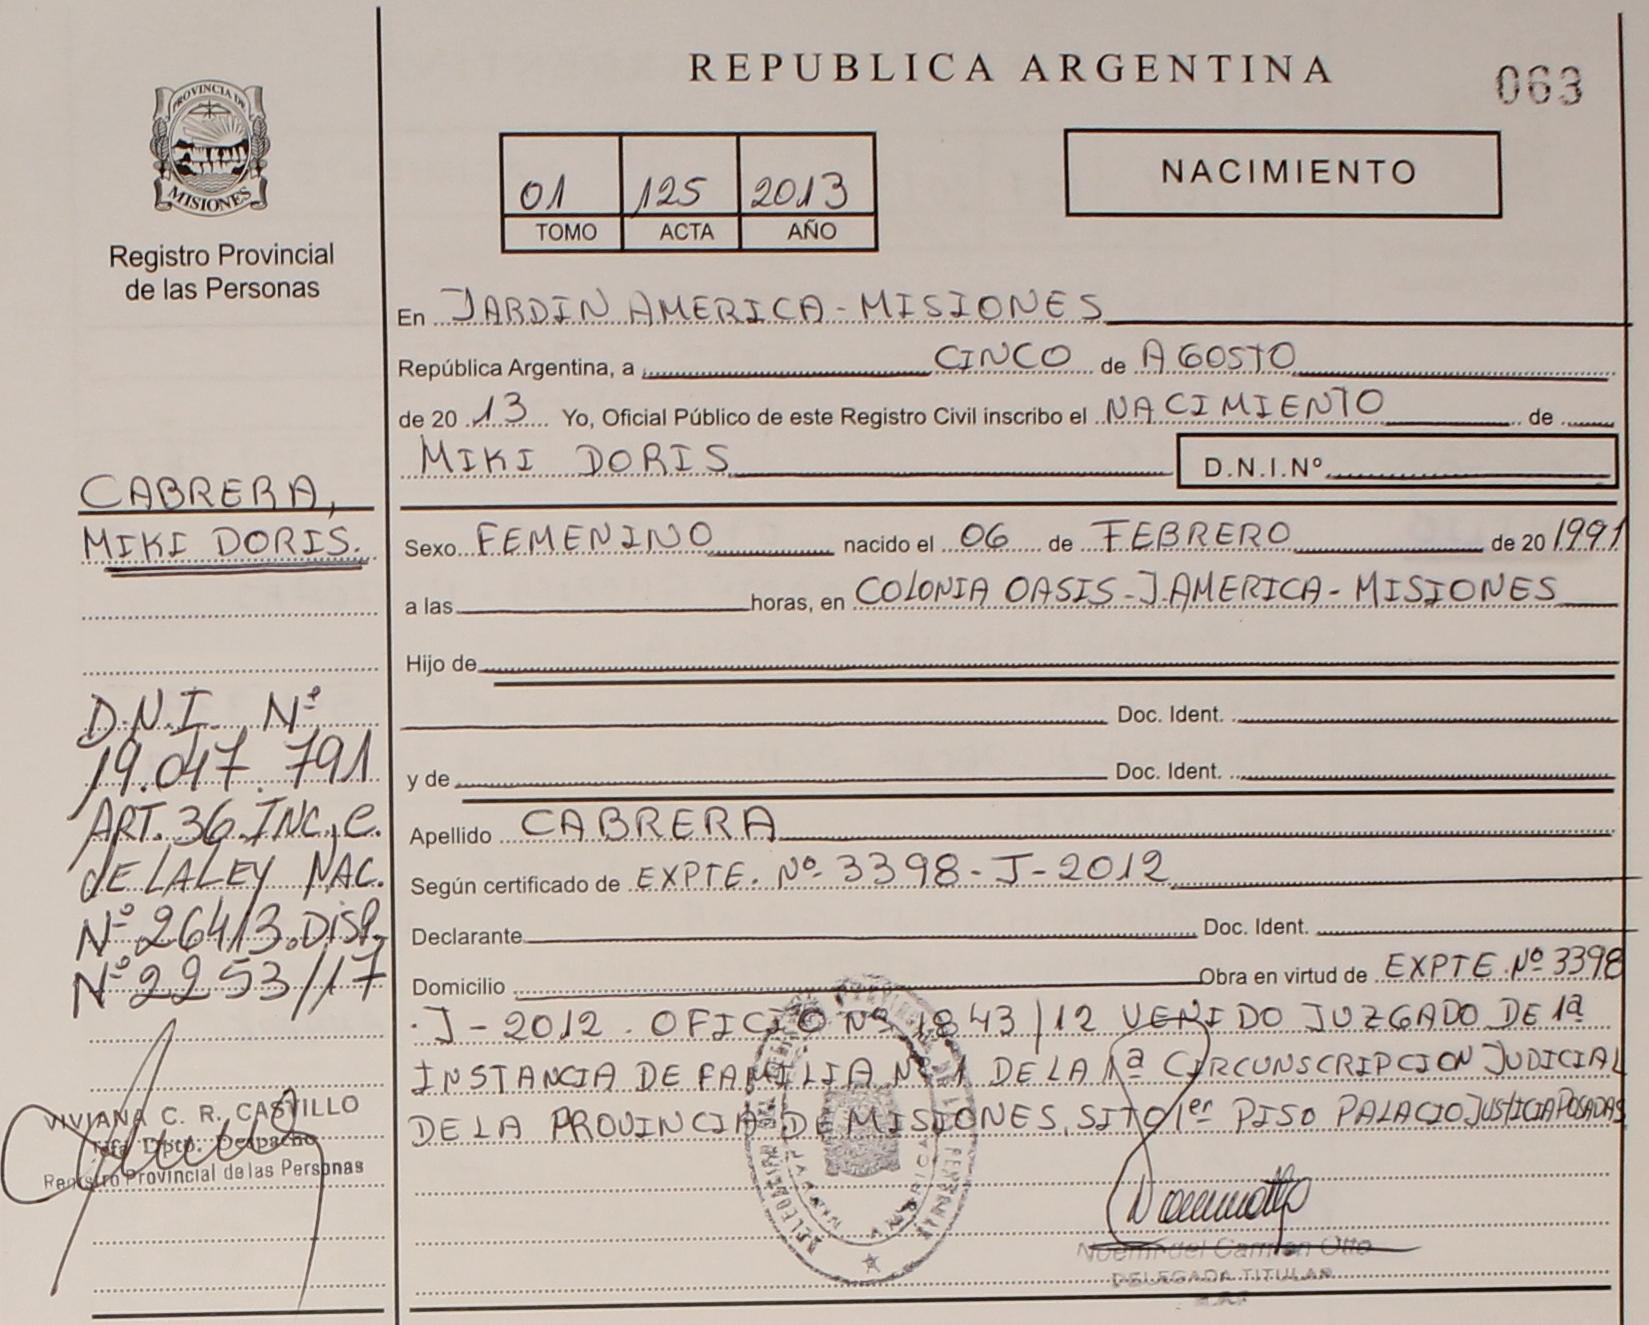 PROVINCIA DE
MISIONES
Registro Provincial
de las Personas
CABRERA,
MIKI DORIS.
D.N.I. Nº
19.047.791
ART. 36. INC, C.
de LA LEY NAC.
Nº 26413. DISP.
Nº 2253/17
VIVIANA C. R. CASTILLO
Jefa Dpto. Despacho
Registro Provincial de las Personas
REPUBLICA ARGENTINA
063
01 125 2013
TOMO ACTA AÑO
NACIMIENTO
En JARDIN AMERICA - MISIONES
República Argentina, a CINCO de AGOSTO
de 20 13 Yo, Oficial Público de este Registro Civil inscribo el NACIMIENTO de
MIKI DORIS D.N.I.Nº
Sexo FEMENINO nacido el 06 de FEBRERO de 20 1991
a las horas, en COLONIA OASIS - J. AMERICA - MISIONES
Hijo de
Doc. Ident.
y de Doc. Ident.
Apellido CABRERA
Según certificado de EXPTE. Nº 3398 - J - 2012
Declarante Doc. Ident.
Domicilio Obra en virtud de EXPTE. Nº 3398
J - 2012 . OFICIO Nº 1843/12 VENIDO JUZGADO DE 1ª
INSTANCIA DE FAMILIA Nº 1 DE LA 1ª CIRCUNSCRIPCION JUDICIAL
DE LA PROVINCIA DE MISIONES, SITO 1er PISO PALACIO JUSTICIA POSADAS
Noemi del Carmen Otto
DELEGADA TITULAR